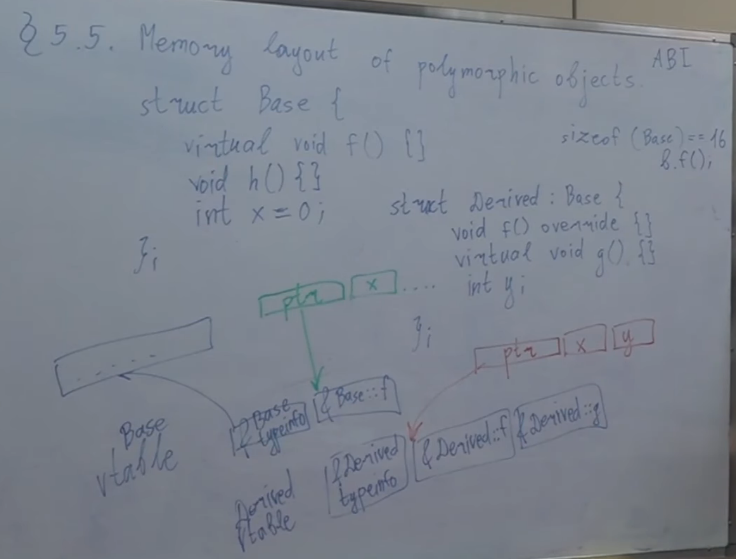 § 5.5. Memory layout of polymorphic objects.
ABI
struct Base {
virtual void f() {}
void h() {}
int x = 0;
};
sizeof (Base) == 16
B.f();
struct Derived : Base {
void f() override {}
virtual void g() {}
int y;
};
ptr x ....
ptr x y
&Base typeinfo &Base::f
Base vtable
&Derived typeinfo &Derived::f &Derived::g
Derived vtable